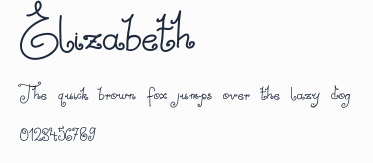 Elizabeth
The quick brown fox jumps over the lazy dog
0123456789